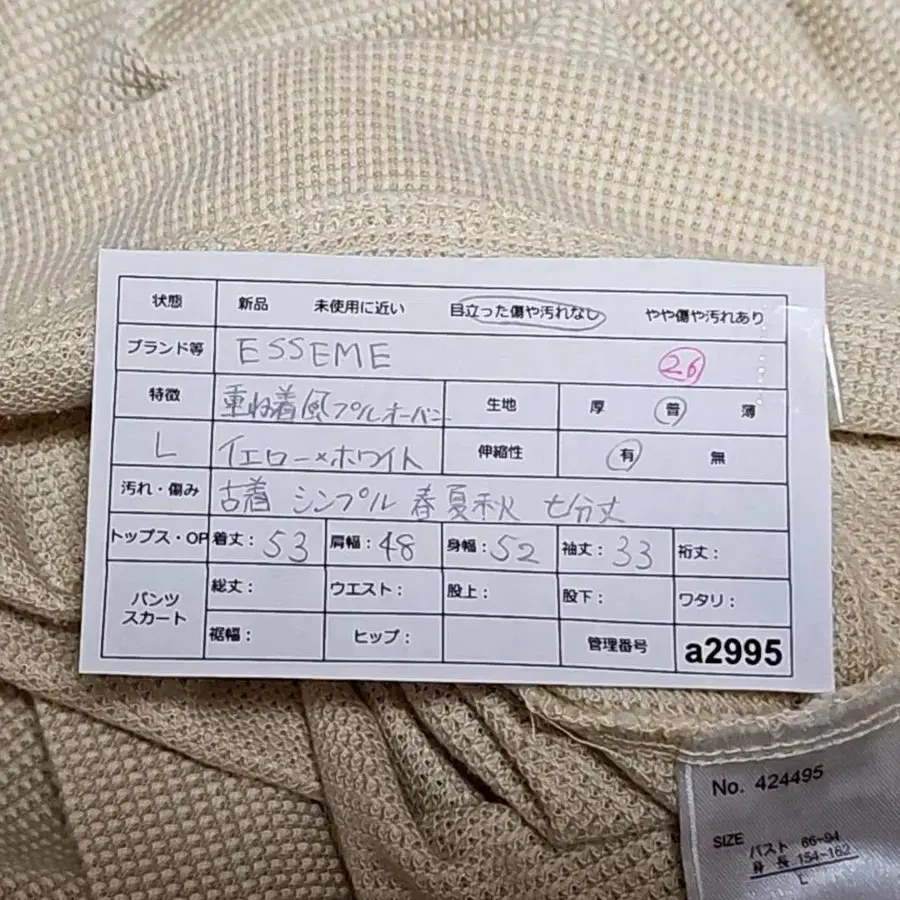 状態 新品 未使用に近い 目立った傷や汚れなし やや傷や汚れあり
ブランド等 ESSEME 26
特徴 重ね着風プルオーバー 生地 厚 普 薄
L イエロー×ホワイト 伸縮性 有 無
汚れ・傷み 古着 シンプル 春夏秋 七分丈
トップス・OP 着丈：53 肩幅：48 身幅：52 袖丈：33 裄丈：
パンツ スカート 総丈： ウエスト： 股上： 股下： ワタリ：
裾幅： ヒップ： 管理番号 a2995
No. 424495
SIZE バスト 86~94
身長 154~162
L